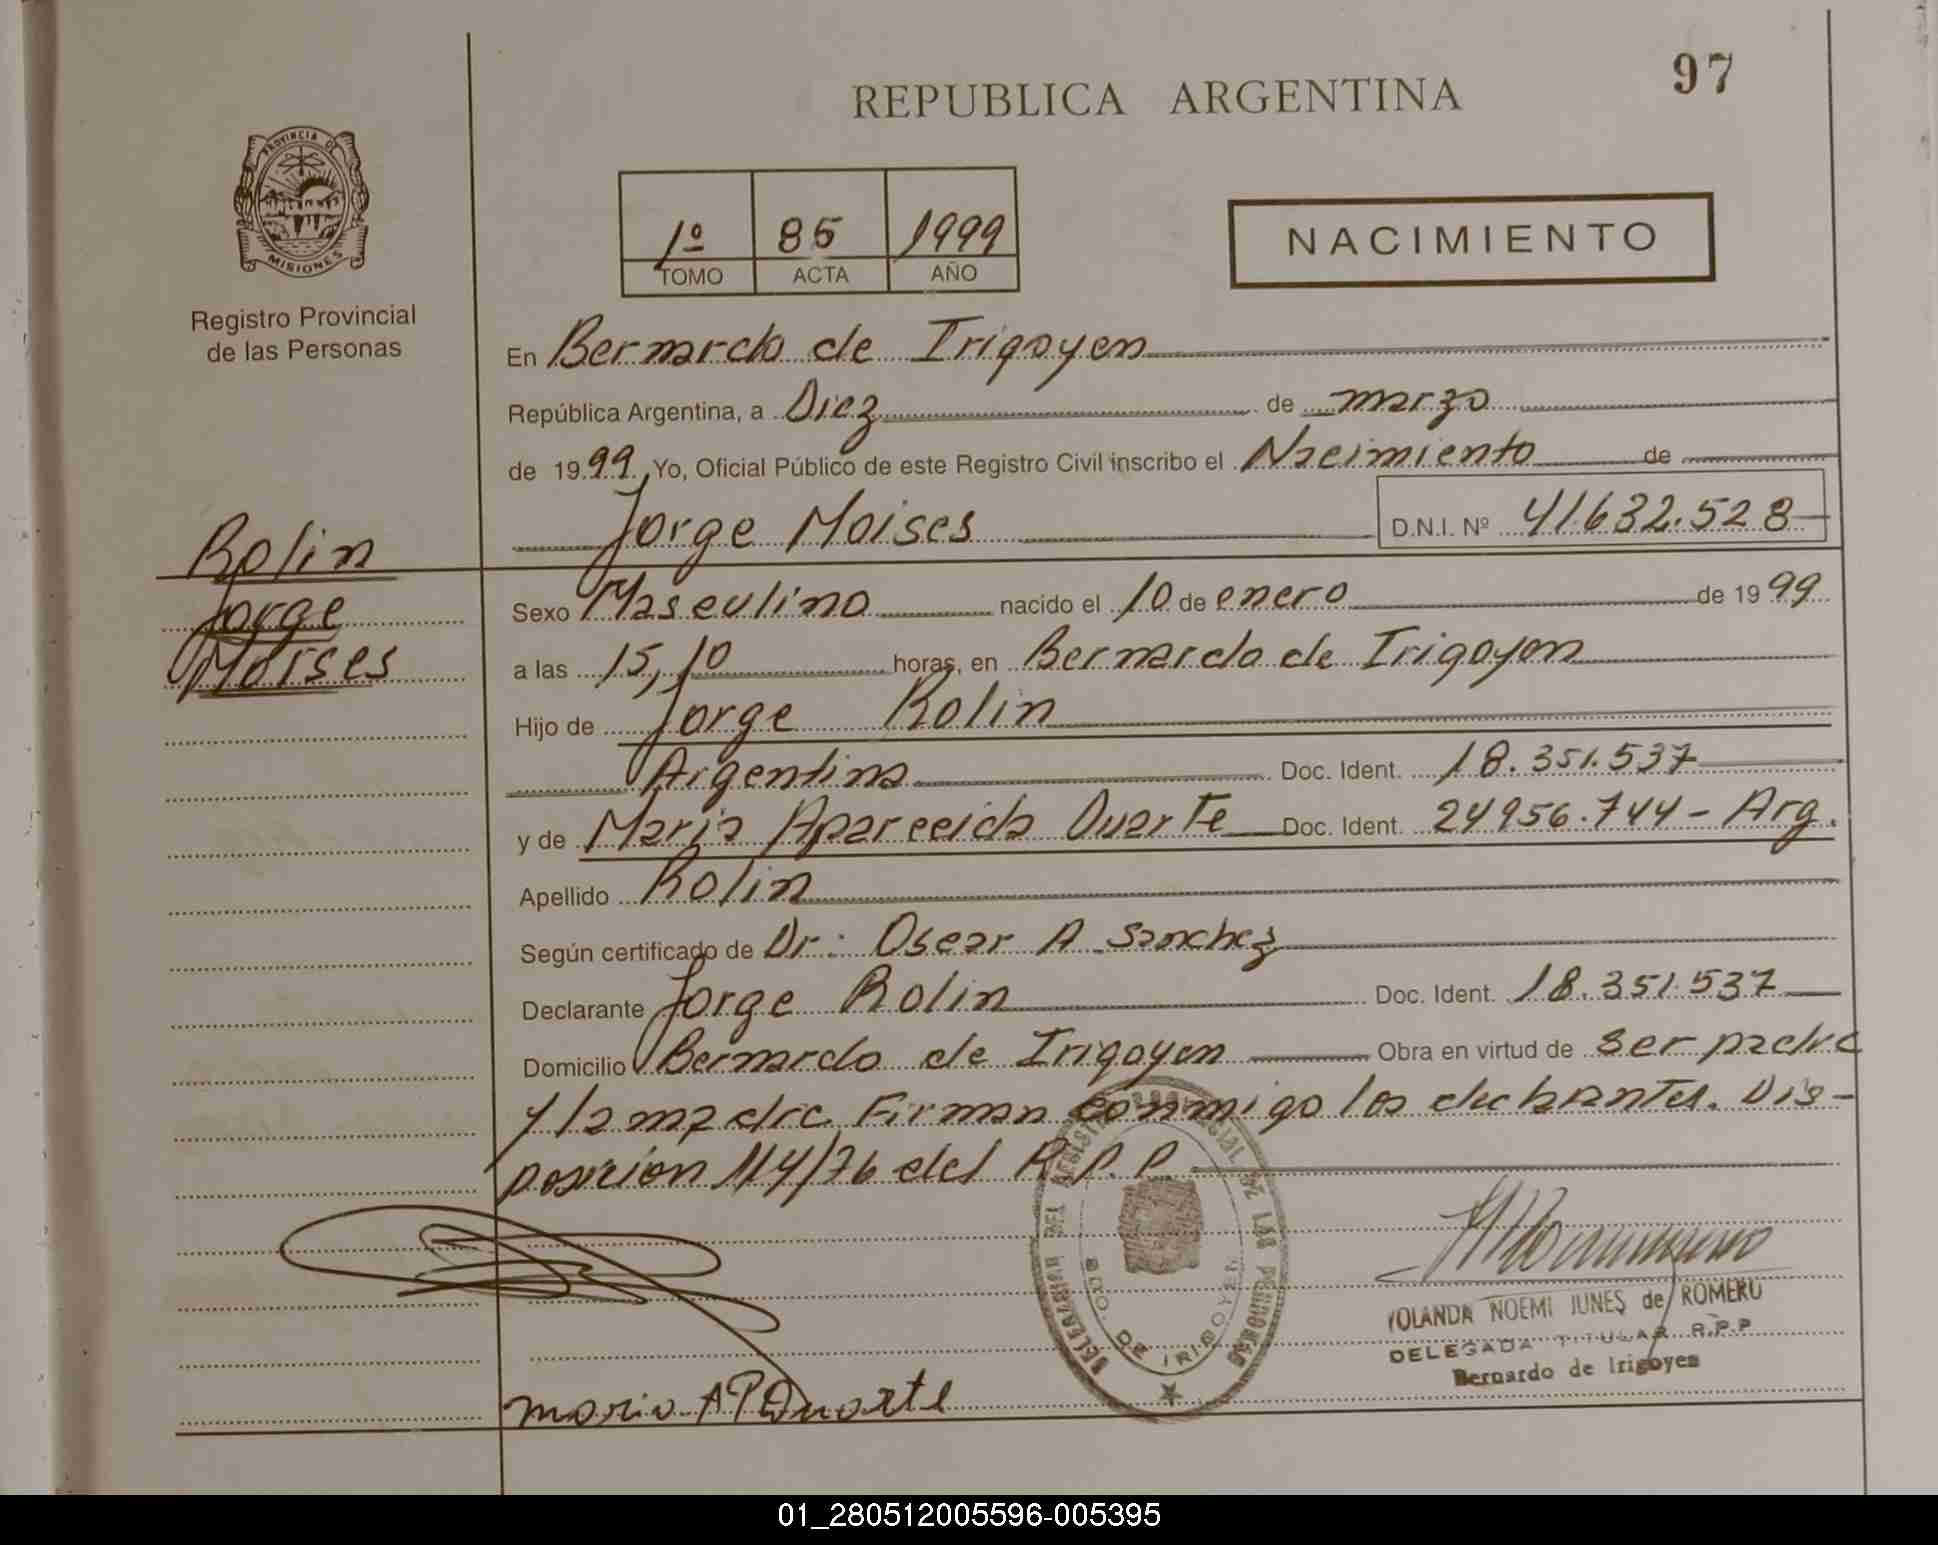 97
REPUBLICA ARGENTINA
PROVINCIA DE
MISIONES
Registro Provincial
de las Personas
1º 85 1999
TOMO ACTA AÑO
NACIMIENTO
En Bernardo de Irigoyen
República Argentina, a Diez de marzo
de 1999 Yo, Oficial Público de este Registro Civil inscribo el Nacimiento de
Jorge Moises D.N.I. Nº 41.632.528
Rolin
Jorge
Moises
Sexo Masculino nacido el 10 de enero de 1999
a las 15,10 horas, en Bernardo de Irigoyen
Hijo de Jorge Rolin
Argentina Doc. Ident. 18.351.537
y de Maria Aparecida Duarte Doc. Ident. 24956.744 - Arg.
Apellido Rolin
Según certificado de Dr: Oscar A Sanchez
Declarante Jorge Rolin Doc. Ident. 18.351.537
Domicilio Bernardo de Irigoyen Obra en virtud de ser padre
y la madre. Firman conmigo los declarantes. Dis-
posicion 114/76 del R.P.P.
DELEGACION DEL REGISTRO PROVINCIAL DE LAS PERSONAS
DE IRIGOYEN
YOLANDA NOEMI JUNES de ROMERO
DELEGADA TITULAR R.P.P
Bernardo de Irigoyen
maria AP Duarte
01_280512005596-005395